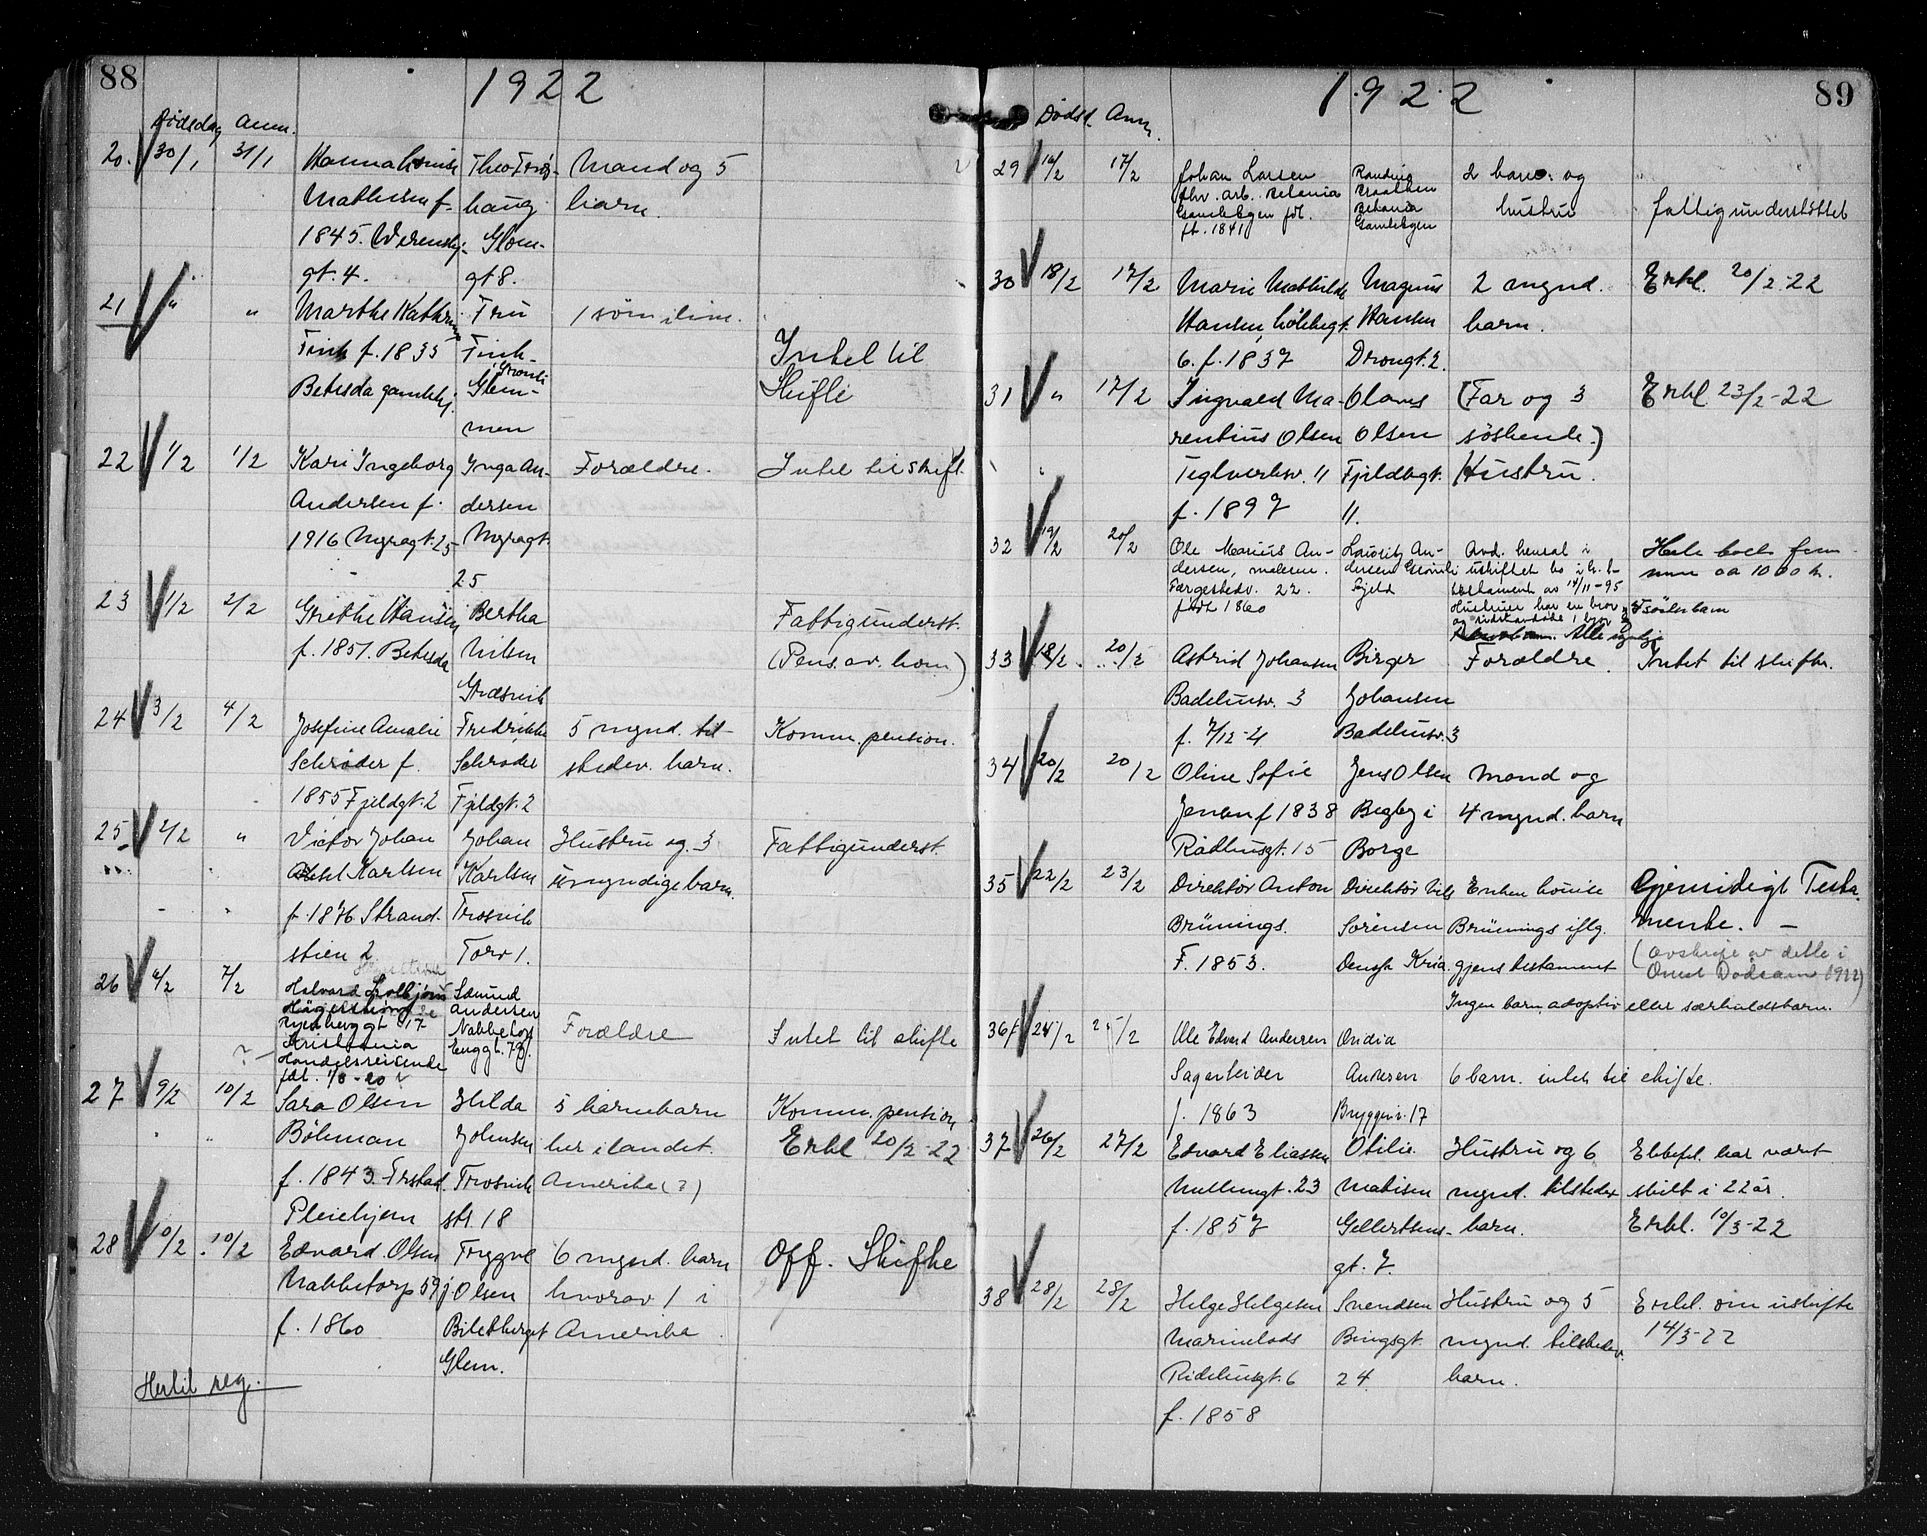 88
1922
Dødsdag Anm.
20. 30/1 31/1 Hanna Lovise Theo Frös- Mand og 5
Mathisen f. haug barn.
1845. Werenskj. Glom-
gt. 4. gt 8.
21 " " Marthe Kathrine Fru 1 søn ilive.
Fink f. 1835 Fink Intet til
Betesda gamlehj. Glem- Skifte
men
22 1/2 1/2 Kari Ingeborg Inga An- Forældre. Intet til skift.
Andersen f. dersen
1916 Nygagt. 25 Nygagt.
25
23 1/2 2/2 Grethe Hansen Bertha Fattigunderst.
f. 1851. Betesda Nilsen (Pens. av. kom)
Græsvik
24 3/2 4/2 Josefine Amalie Fredrikke 5 mynd. til- Komm. pension.
Schrøder f. Schrøder stedev. barn.
1855 Fjeldgt. 2 Fjeldgt. 2
25 2/2 " Victor Johan Johan Hustru og 3 Fattigunderst.
Karlsen Karlsen umyndige barn.
f. 1876 Strand- Trosvik
stien 2 Torv 1.
26 6/2 7/2 Halvard Samund
Andersen
17 Nabbetorp
Kristiania Enggt. 7 Forældre Intet til skifte
Handelsreisende
fdt. 1/8-20
27 9/2 10/2 Sara Olsen Hilda 5 barnebarn Komm. pension
Böhman Johnsen her ilandet. Erkl 20/2-22
f. 1843. Ørstad Trosvik Amerika (?)
Pleiehjem str. 18
28 10/2 10/2 Edvard Olsen Trygve 6 mynd. barn Off. Skifte
Nabbetorp 59 Olsen hvorav 1 i
f. 1860 Biletberget Amerika
Glem.
Hertil reg.
89
1922
Dødsd. Anm.
29 16/2 17/2 Johan Larsen 2 barn og
fhv. arb. Betania Braathen hustru fattigunderstöttet
Gamlebyen fdt. Betania
ft. 1841 Gamlebyen
30 18/2 17/2 Marie Mathilde Magnus 2 mynd. Erkl. 20/2-22
Hansen, Hansen barn.
6. f. 1837 Drongt. 2.
31 " 17/2 Ingvald Ma- Olaves (Far og 3 Erkl 23/2-22
rentius Olsen Olsen søskende.)
Teglverksv. 11 Fjeldbgt. Hustru.
f. 1897 11.
32 19/2 20/2 Ole Marius An- Lauritz An- Avd. hensat i Hele boets form
dersen, maler dersen uskiftet bo i h. t. ca 1000 kr.
Færgestedv. 22. Fjeld testament av 14/11-95
født 1860 Hustruen har en bror
Alle myndige
33 18/2 20/2 Astrid Johansen Birger Forældre. Intet til skifte.
Badehusv. 3 Johansen
f. 7/12-21 Badehusv. 3
34 20/2 20/2 Oline Sofie Jens Olsen Mand og
Jensen f 1838 Begby i 4 mynd. barn
Rådhusgt. 15 Borge
35 22/2 23/2 Direktør Anton Direktør Nils Enken Louise Gjensidigt Testa-
Brünings. Sørensen Brünings iflg. mente. -
F. 1853. Kria. gjens. testament (avskrift av dette i
Omsl. Dødsanm. 1922)
Ingen barn, adoptiv eller særkuldsbarn.
36 24/2 25/2 Ole Edvard Andersen Ondia
Sagarbeider Andersen 6 barn. intet til skifte.
f. 1863 Bryggeriv. 17
37 26/2 27/2 Edvard Eliassen Otilie Hustru og 6 Ektefel. har været
Nullengt. 23 Matisen mynd. tilstedev. skilt i 22 år.
f. 1857 Gellertsens- barn. Erkl. 10/3-22
gt. 7.
38 28/2 28/2 Helge Helgesen Svendsen Hustru og 5 Erkl. om uskifte
Marinelods Bingsgt. mynd. tilstedev. 14/3-22
Ridehusgt. 6 24 barn.
f. 1858